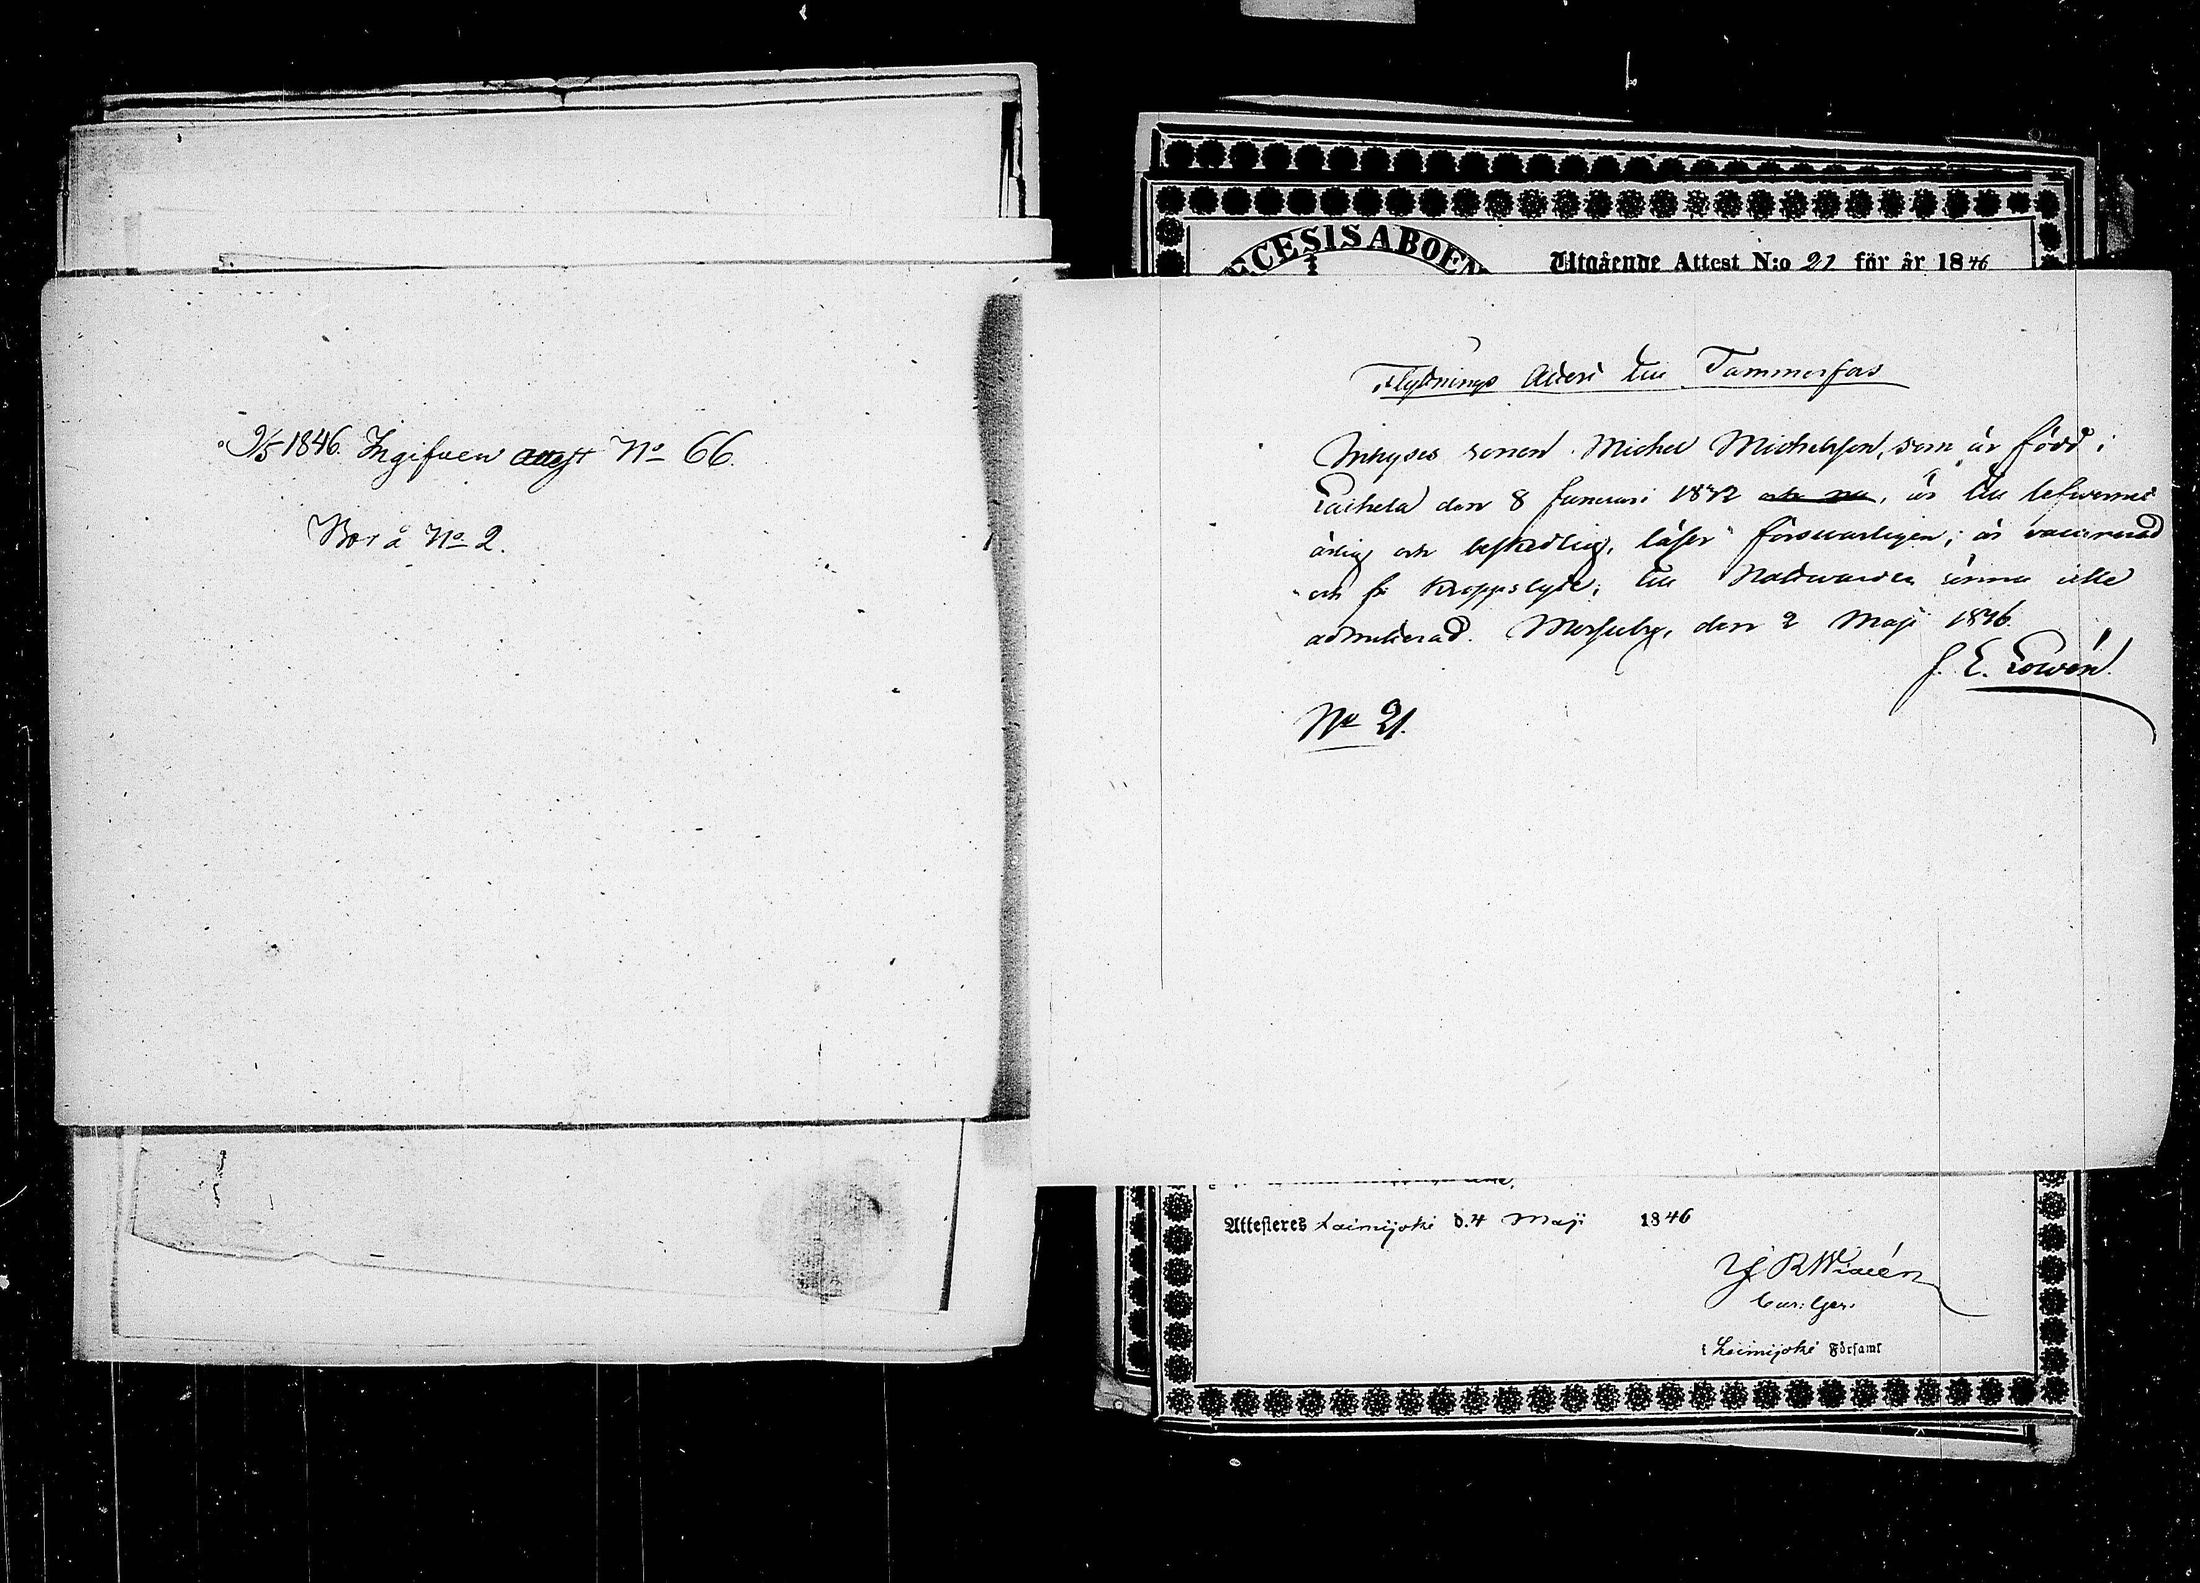 9/5 1846. Ingifven attest No 66.
Bor å No 2.
ECESIS ABOEN
Utgående Attest N:o 21 för år 1846
Flyttnings Attest till Tammerfors
Inhyses sonen Michel Michelsson, som är född i
Laihela den 8 Januari 1842 och, är till lefwernet
ärlig och beskedlig, läser försvarligen; är vaccinerad
och fri kroppslyte; till Nattvarden ännu icke
admitterad. den 2 Maji 1846.
J. E.
No 21.
Attesteres Loimijoki d. 4 Maji 1846
i Loimijoki Församl